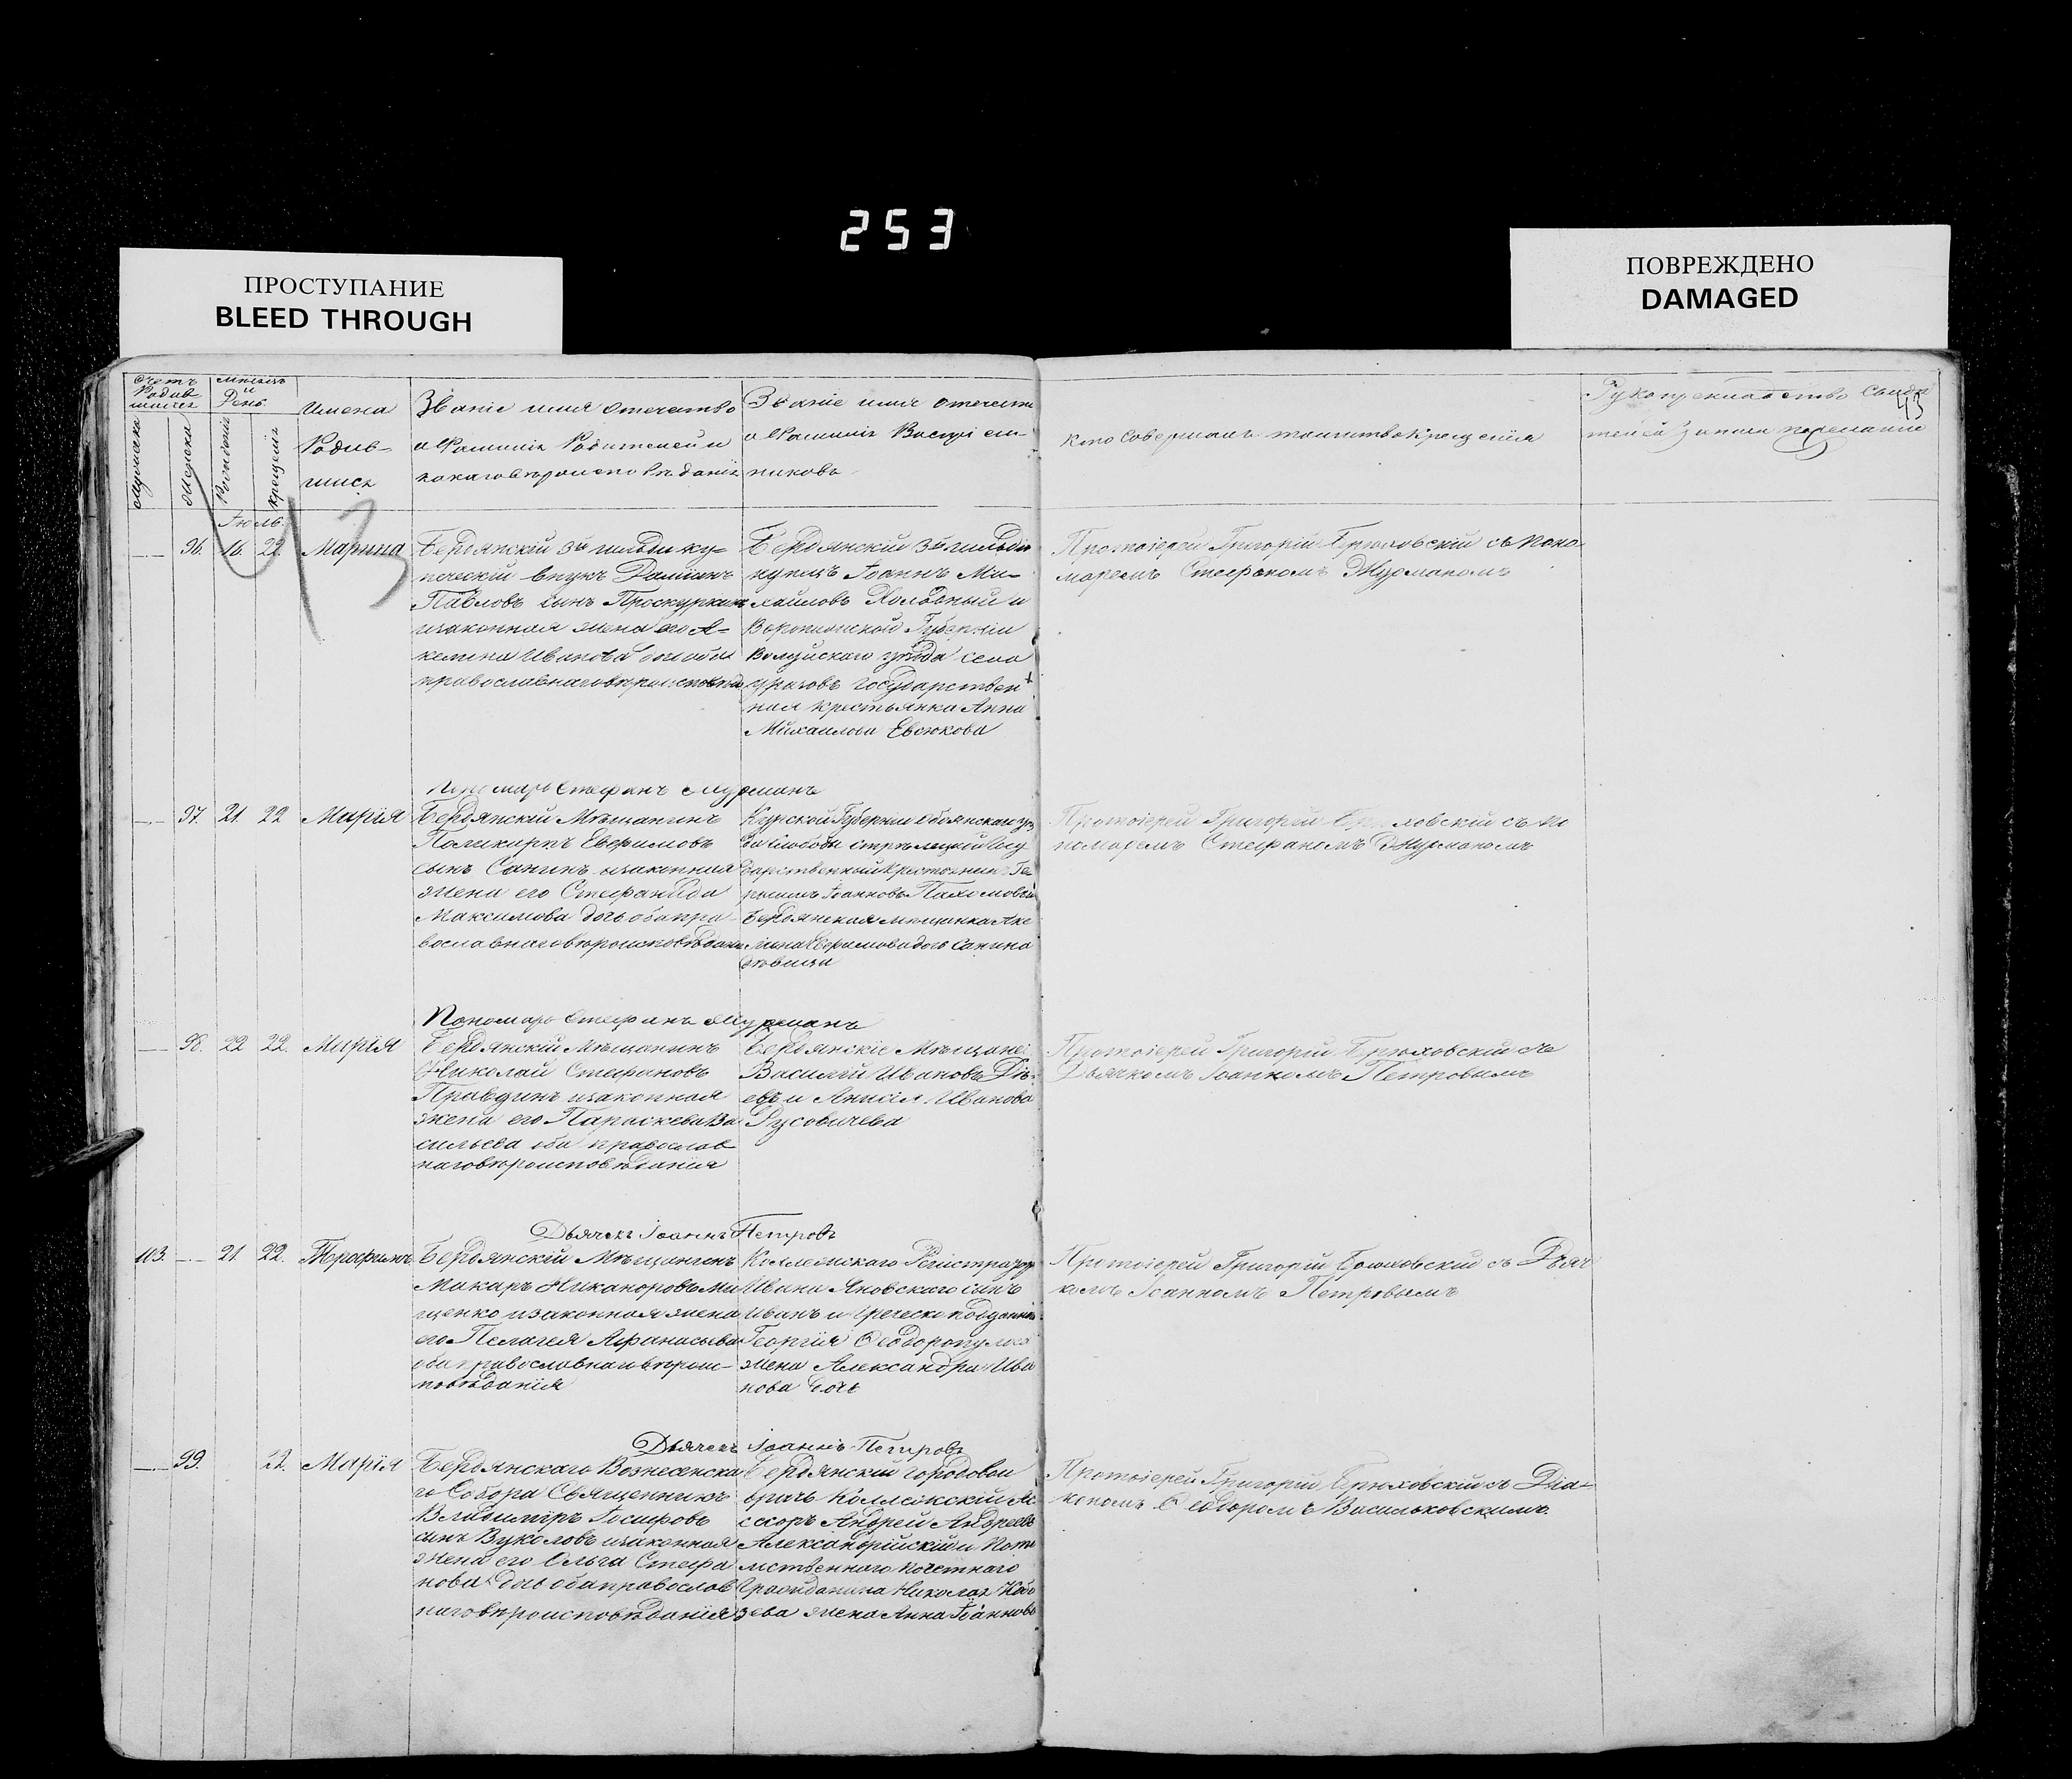 253
ПРОСТУПАНИЕ
BLEED THROUGH
ПОВРЕЖДЕНО
DAMAGED
43
Счетъ
Родив
шихся
Мѣсяцъ
и
День.
Мужеска
Женска
Рожденія
Крещенія
Имена
Родив-
шихся
Званіе имя отечество
и Фамилія Родителей и
какого вѣроисповѣданія
Званіе имя отечество
и Фамилія Воспріем-
никовъ
кто совершалъ таинство крещенія
Рукоприкладство свидѣ
телей записи по желанію
Іюль.
96. 16. 22. Марина
Бердянскій 3й гильдіи ку-
печескій внукъ Даміанъ
Павловъ сынъ Проскуркинъ
и законная жена его А-
келина Иванова оба
православнаго вѣроисповѣд
Бердянскій 3й гильдіи
купецъ Іоаннъ Ми-
хайловъ Холодный и
Воронежской Губерніи
Волуйскаго уѣзда села
уразовъ государствен
ная крестьянка Анна
Михаилова Евсюкова
Протоіерей Григорій Брюховскій съ поно-
маремъ Стефаномъ Журманомъ
Пономарь Стефанъ Журманъ
97. 21 22 Марія
Бердянскій Мѣщанинъ
Поликарпъ Евфимовъ
сынъ Санинъ и законная
жена его Стефанида
Максимова дочь оба пра
вославнаго вѣроисповѣдан
Курской Губерніи Обоянскаго уѣз
да слободы стрѣлецкой Госу
дарственный крестьянинъ Ге
расимъ Іоанновъ Пахомовъ и
Бердянская мѣщанка Аке
лина Евфимова дочь Санина
дѣвица
Протоіерей Григорій Брюховскій съ по
номаремъ Стефаномъ Журманомъ
Пономарь Стефанъ Журманъ
98. 22 22. Марія
Бердянскій Мѣщанинъ
Николай Стефановъ
Правдинъ и законная
жена его Параскева Ва
сильева оба православ
наго вѣроисповѣданія
Бердянскіе Мѣщане:
Василій Ивановъ
евъ и Анисія Иванова
Русовичева
Протоіерей Григорій Брюховскій съ
Дьячкомъ Іоанномъ Петровымъ
Дьячекъ Іоаннъ Петровъ
103. 21 22. Трофимъ
Бердянскій Мѣщанинъ
Макаръ Никаноровъ Ми
щенко и законная жена
его Пелагея Афанасьева
оба православнаго вѣроис-
повѣданія
Коллежскаго Регистратора
Ивана Яновскаго сынъ
Иванъ и Греческо подданнаго
Георгія Феодоропулоса
жена Александра Ива
нова дочь
Протоіерей Григорій Брюховскій съ Дьяч
комъ Іоанномъ Петровымъ
Дьячекъ Іоаннъ Петровъ
99. 22. Марія
Бердянскаго Вознесенска
го Собора Священникъ
Владиміръ Іосифовъ
сынъ Вуколовъ и законная
жена его Ольга Стефа
нова дочь оба православ
наго вѣроисповѣданія
Бердянскій городовой
врачъ Коллежскій Ас
сесоръ Андрей Андреевъ
Александрійскій и Пото
мственнаго почетнаго
Гражданина Николая Кобо
зева жена Анна Іоаннова
Протоіерей Григорій Брюховскій съ Діа-
кономъ Феодоромъ Васильковскимъ.